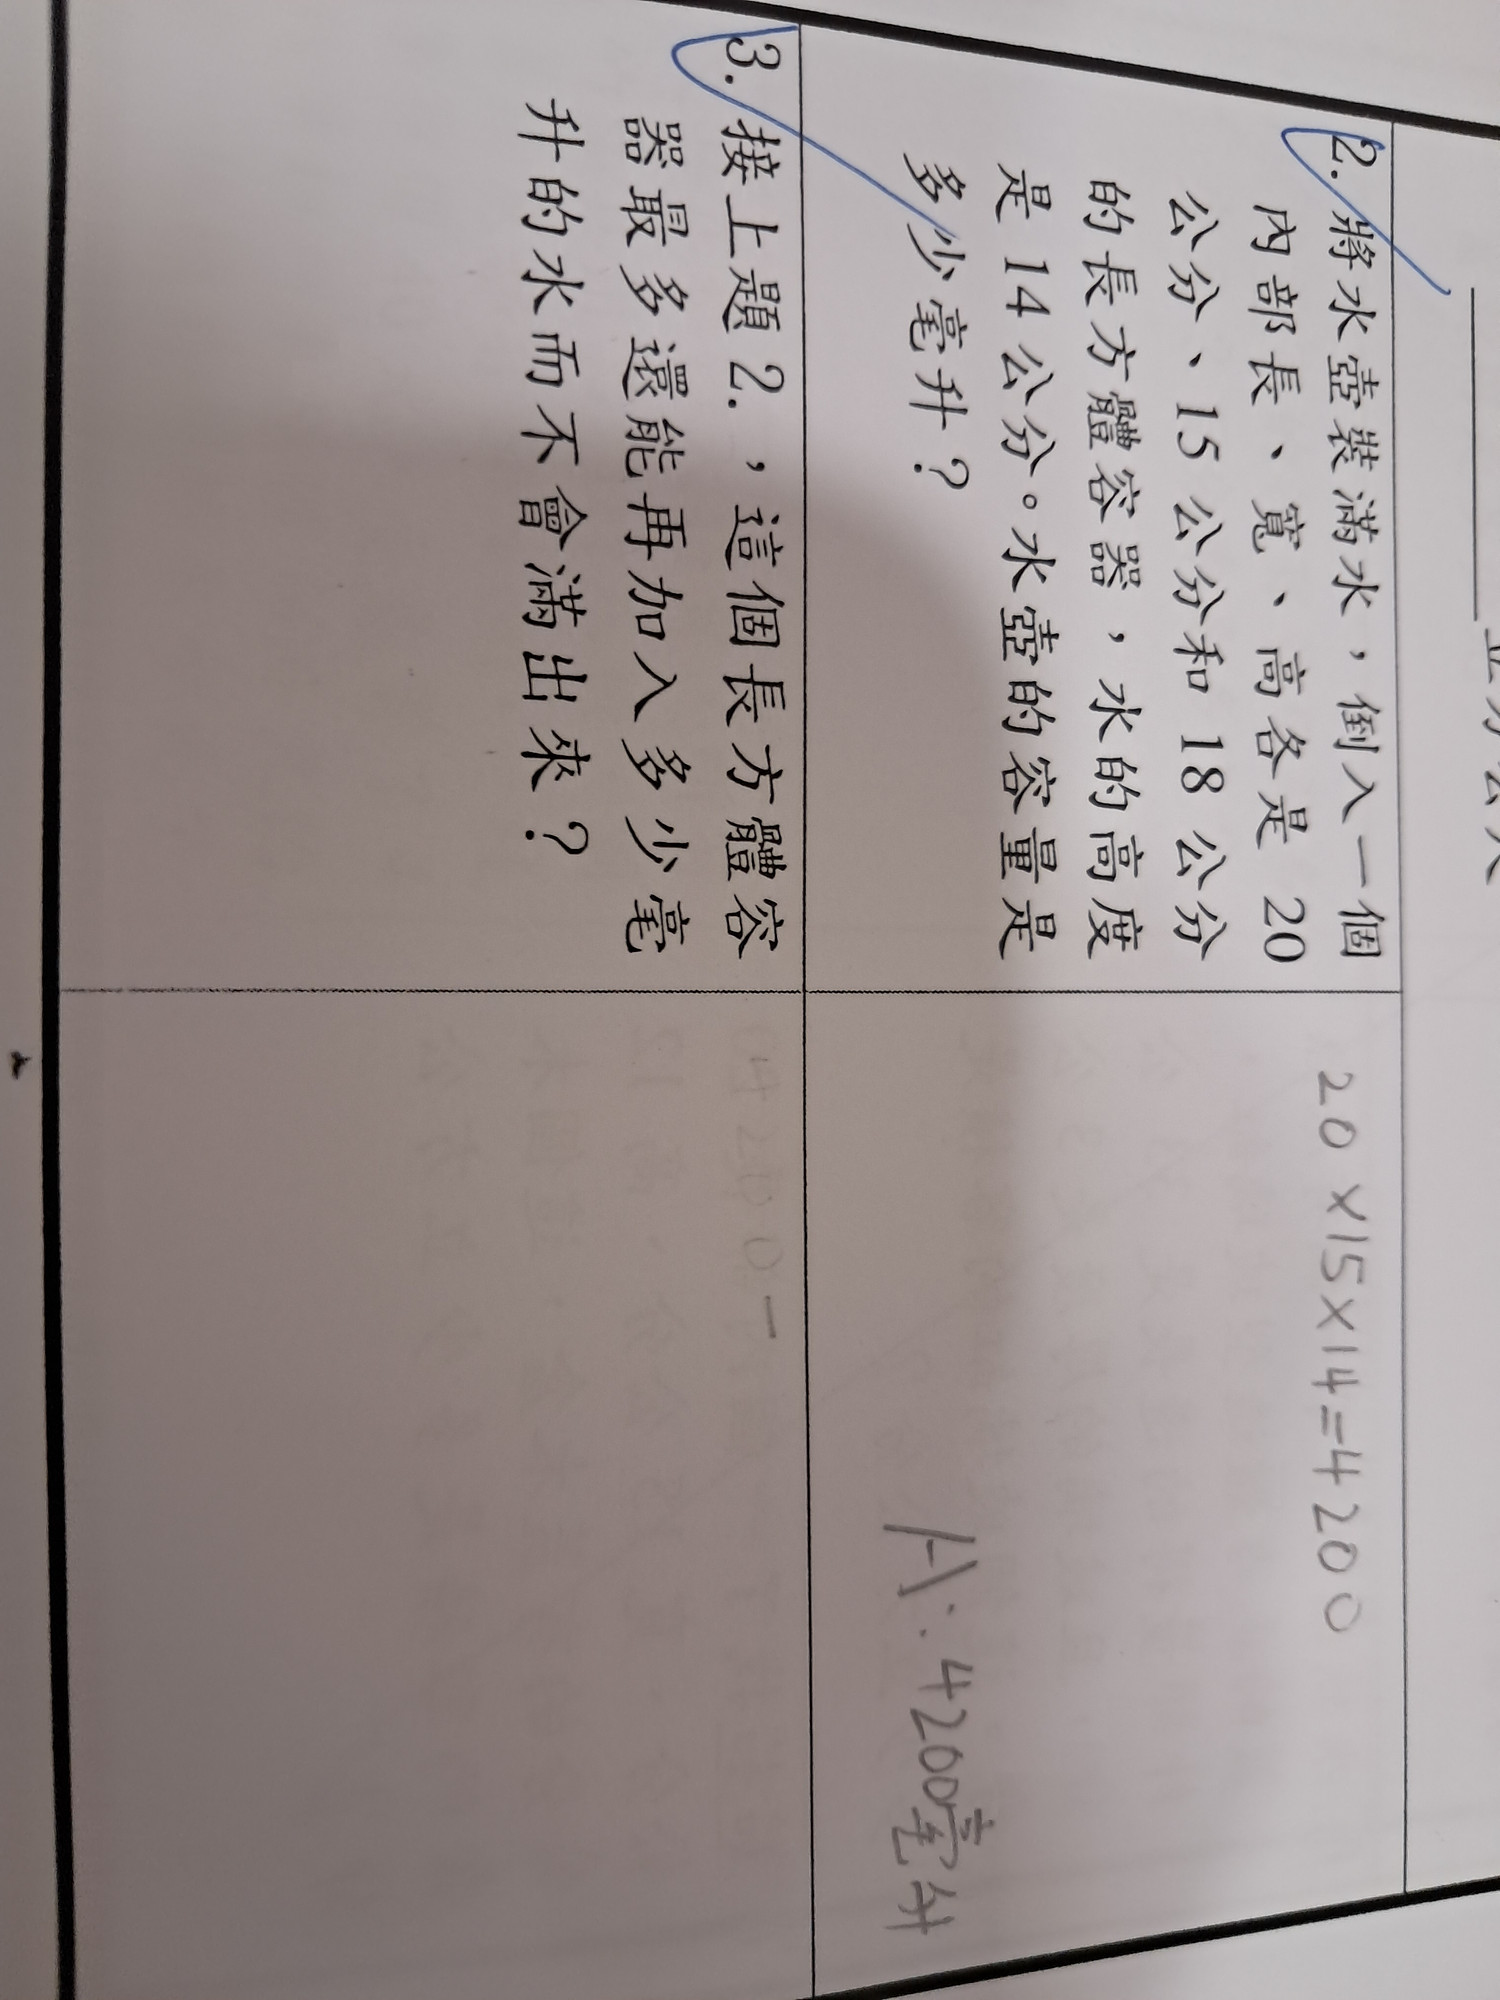 2. 將水壺裝滿水，倒入一個
內部長、寬、高各是 20
公分、15 公分和 18 公分
的長方體容器，水的高度
是 14 公分。水壺的容量是
多少毫升？
20×15×14=4200
A:4200毫升
3. 接上題 2.，這個長方體容
器最多還能再加入多少毫
升的水而不會滿出來？
4200-